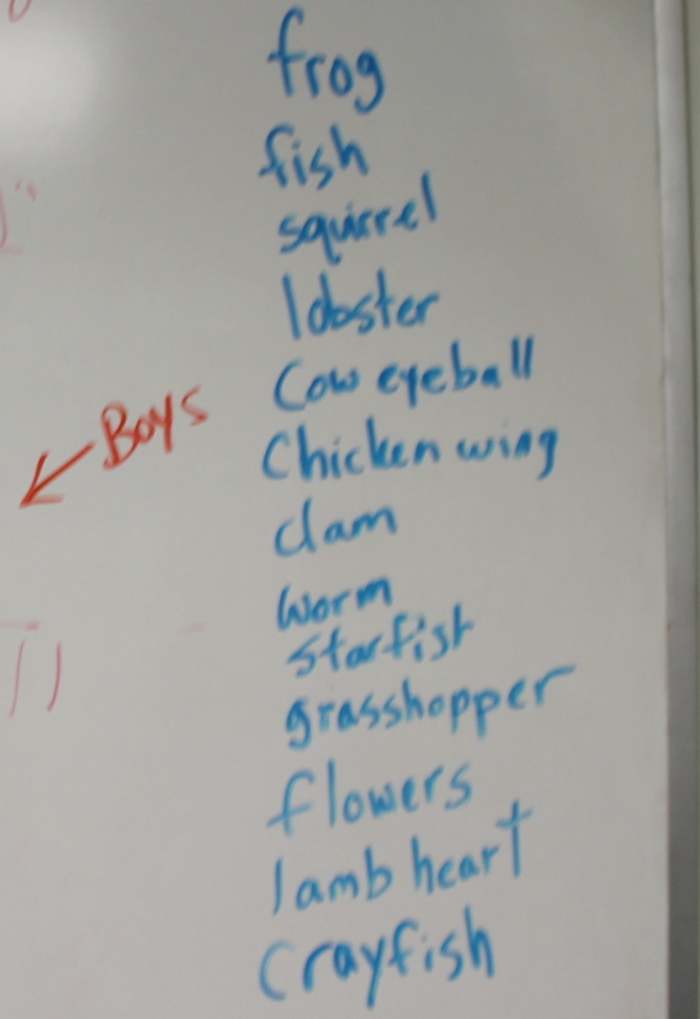 frog
fish
squirrel
lobster
Cow eyeball
← Boys
Chicken wing
clam
worm
starfish
grasshopper
flowers
lamb heart
crayfish